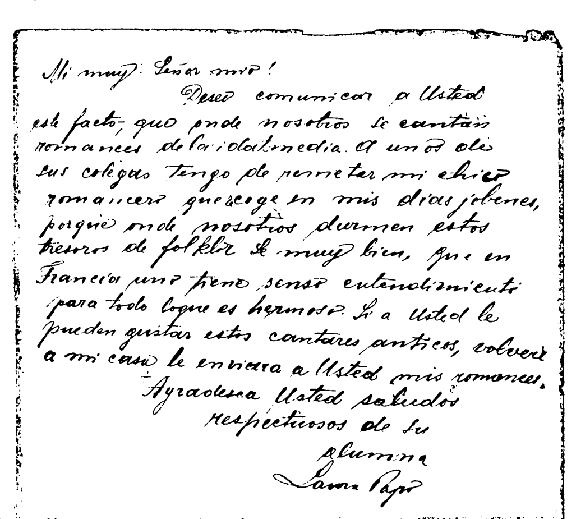 Mi muy Señor mio!
Deseo comunicar a Usted
este facto, que onde nosotros se cantan
romances de la idat media. A unos de
sus colegas tengo de remetar mi chico
romancero que scoge en mis dias jobenes,
porque onde nosotros durmen estos
tresoros de folklor. Se muy bien, que en
Francia uno tiene senso entendimiento
para todo loque es hermoso. Si a Usted le
pueden gustar estos cantares anticos, volvere
a mi casa le enviara a Usted mis romances.
Agradesca Usted saludos
respectuosos de su
alumna
Laura Papo